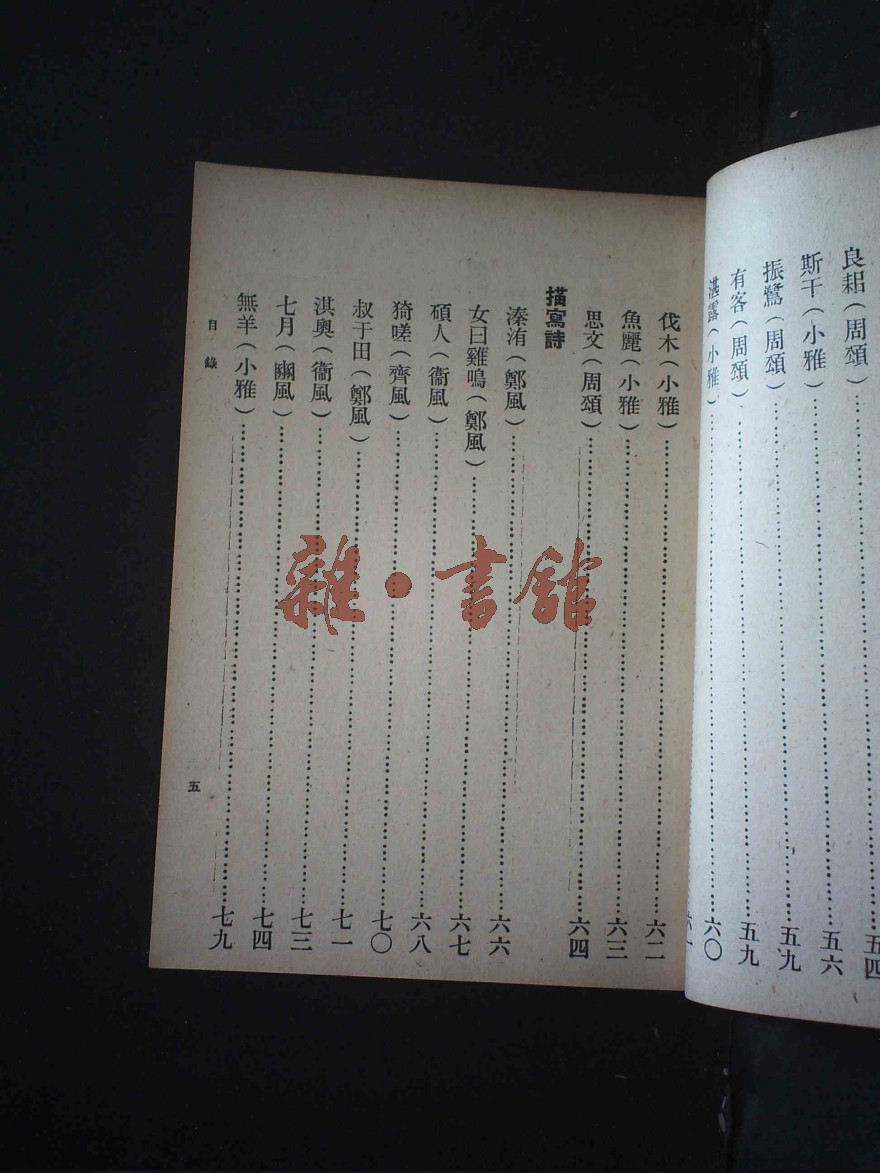 良耜（周頌）………五四
斯干（小雅）………五六
振鷺（周頌）………五九
有客（周頌）………五九
湛露（小雅）………六〇
伐木（小雅）………六二
魚麗（小雅）………六三
思文（周頌）………六四
描寫詩
溱洧（鄭風）………六六
女曰雞鳴（鄭風）………六七
碩人（衞風）………六八
猗嗟（齊風）………七〇
叔于田（鄭風）………七一
淇奧（衞風）………七三
七月（豳風）………七四
無羊（小雅）………七九
目錄
五
雜·書館